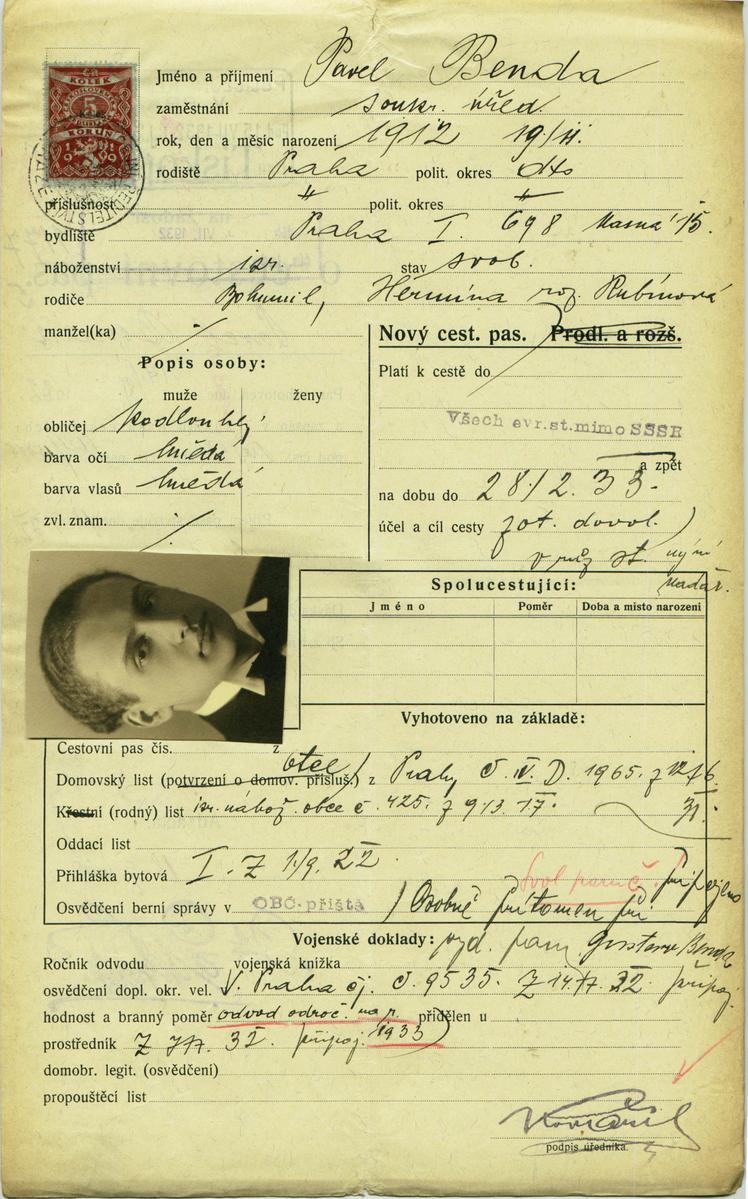 KOLEK
5
KORUN
1919
Jméno a příjmení Pavel Benda
zaměstnání soukr. úřed
rok, den a měsíc narození 1912 19/II.
rodiště Praha polit. okres dto
příslušnost " polit. okres "
bydliště Praha I. 698 Masná 15.
náboženství isr. stav svob.
rodiče Bohumil, Hermína roz. Rubínová
manžel(ka) ⁒
Nový cest. pas. Prodl. a rozš.
Popis osoby:
Platí k cestě do
muže ženy
obličej podlouhlý
Všech evr.st.mimo SSSR
barva očí hnědá
a zpět
barva vlasů hnědá
na dobu do 28/2. 33.
zvl. znam. ⁒
účel a cíl cesty zot. dovol.
v růz st. nyní
Maďar.
Spolucestující:
Jméno Poměr Doba a místo narození
Vyhotoveno na základě:
Cestovní pas čís. z
otce
Domovský list (potvrzení o domov. přísluš.) z Prahy č. IV. D. 1965. z
Křestní (rodný) list isr. nábož. obce č. 425. z 9/3.
Oddací list
Přihláška bytová I. z 1/9. 22.
Svol poruč. připojeno
Osvědčení berní správy v OBČ. příště Osobně přítomen při
Vojenské doklady: vyd. pasu Gustav Benda
Ročník odvodu vojenská knížka
osvědčení dopl. okr. vel. V. Praha čj. č. 9535. z 32. připoj.
hodnost a branný poměr odvod odroč. na r. přidělen u
prostředník z 32. připoj. 1933
domobr. legit. (osvědčení)
propouštěcí list
podpis úředníka.